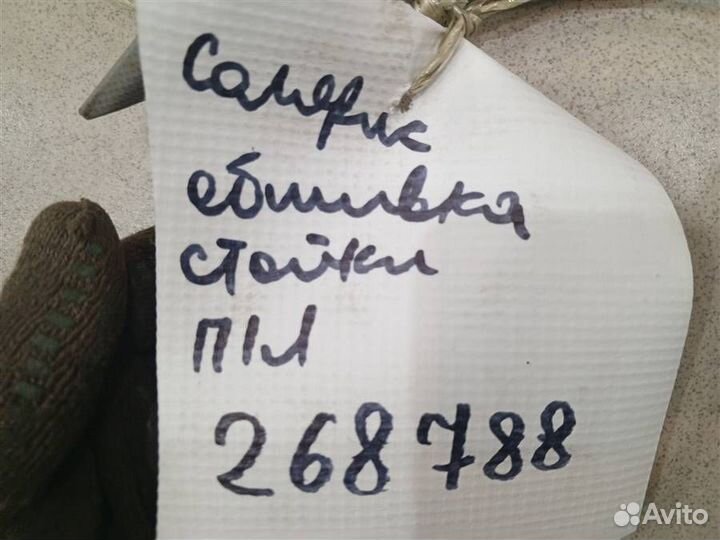 Солярис
обшивка
стойки
П/Л
268788
Avito